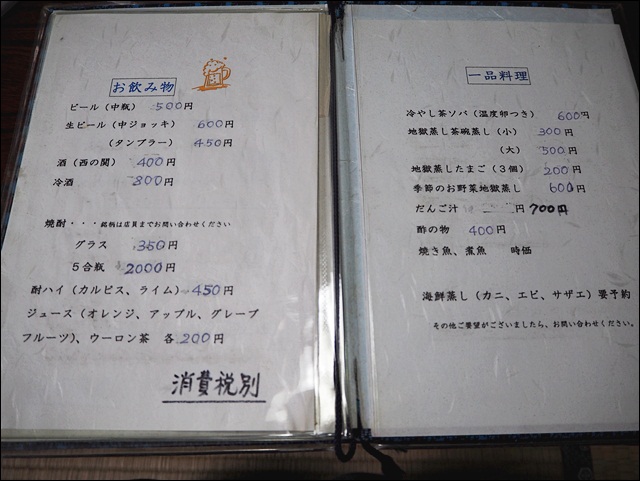 お飲み物
ビール（中瓶） 500円
生ビール（中ジョッキ） 600円
（タンブラー） 450円
酒（西の関） 400円
冷酒 800円
焼酎・・・銘柄は店員までお問い合わせください
グラス 350円
5合瓶 2000円
酎ハイ（カルピス、ライム） 450円
ジュース（オレンジ、アップル、グレープ
フルーツ）、ウーロン茶 各200円
消費税別
一品料理
冷やし茶ソバ（温度卵つき） 600円
地獄蒸し茶碗蒸し（小） 300円
（大） 500円
地獄蒸したまご（3個） 200円
季節のお野菜地獄蒸し 600円
だんご汁 円 700円
酢の物 400円
焼き魚、煮魚 時価
海鮮蒸し（カニ、エビ、サザエ）要予約
その他ご要望がございましたら、お問い合わせください。